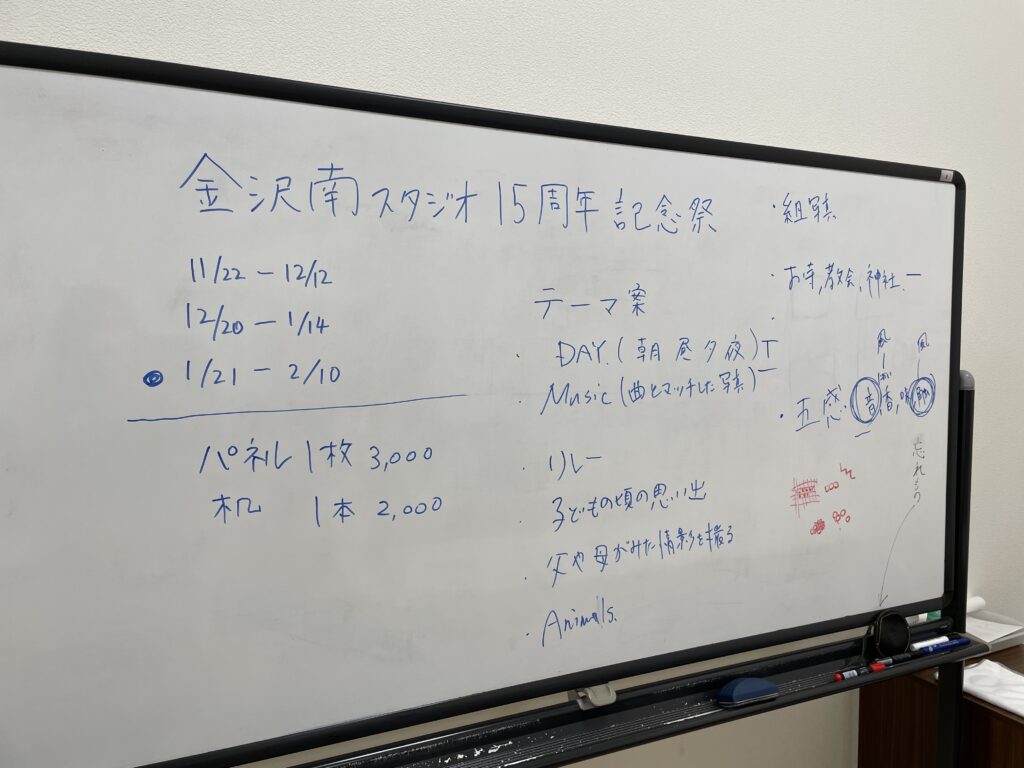 金沢南スタジオ 15周年 記念祭
11/22 - 12/12
12/20 - 1/14
1/21 - 2/10
パネル 1枚 3,000
机 1本 2,000
テーマ案
・ DAY. (朝 昼 夕 夜)
Music (曲とマッチした写真)
・ リレー
・ 子どもの頃の思い出
・ 父や母がみた情景を撮る
・ Animals.
・組写真
・お寺, 教会, 神社. ー
・
風 風
・五感. 音 香, 味
忘れもの